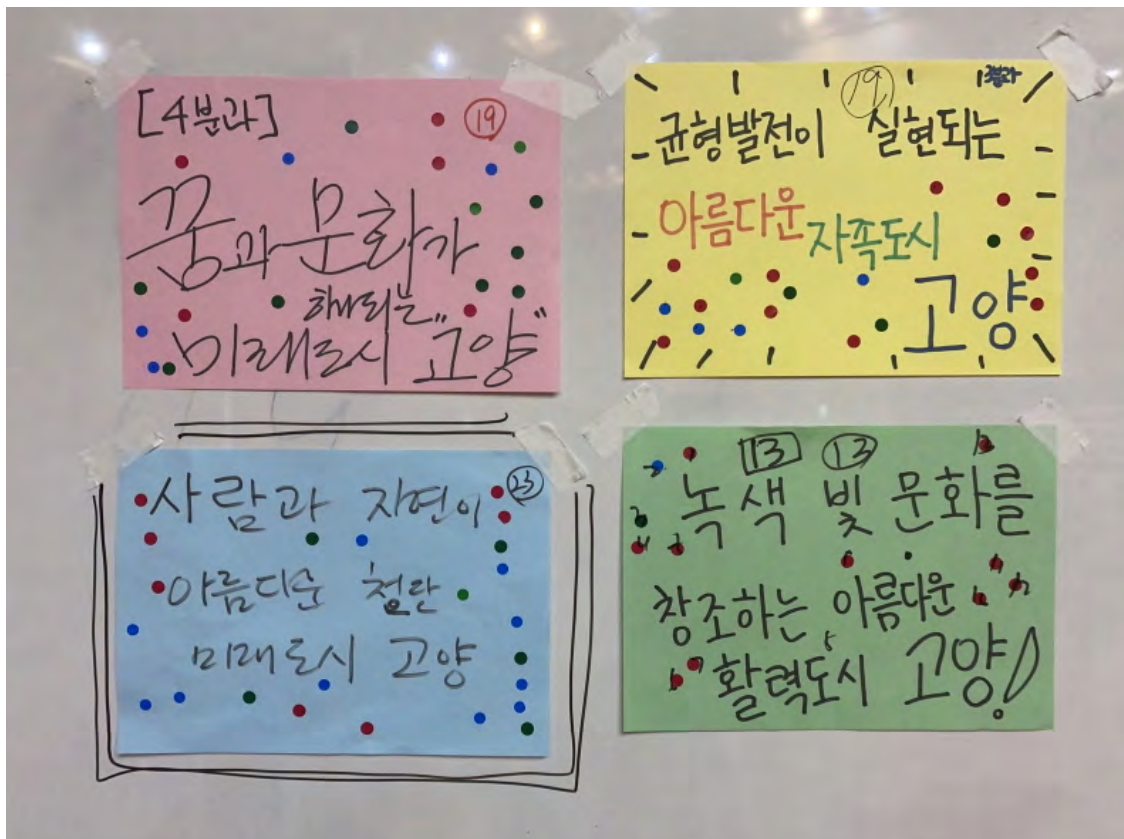 [4분과] 19
꿈과 문화가
하나되는
미래도시 "고양"
19
균형발전이 실현되는
아름다운 자족도시
고양
23
사람과 자연이
아름다운 첨단
미래도시 고양
13 13
녹색 빛 문화를
창조하는 아름다운
활력도시 고양!